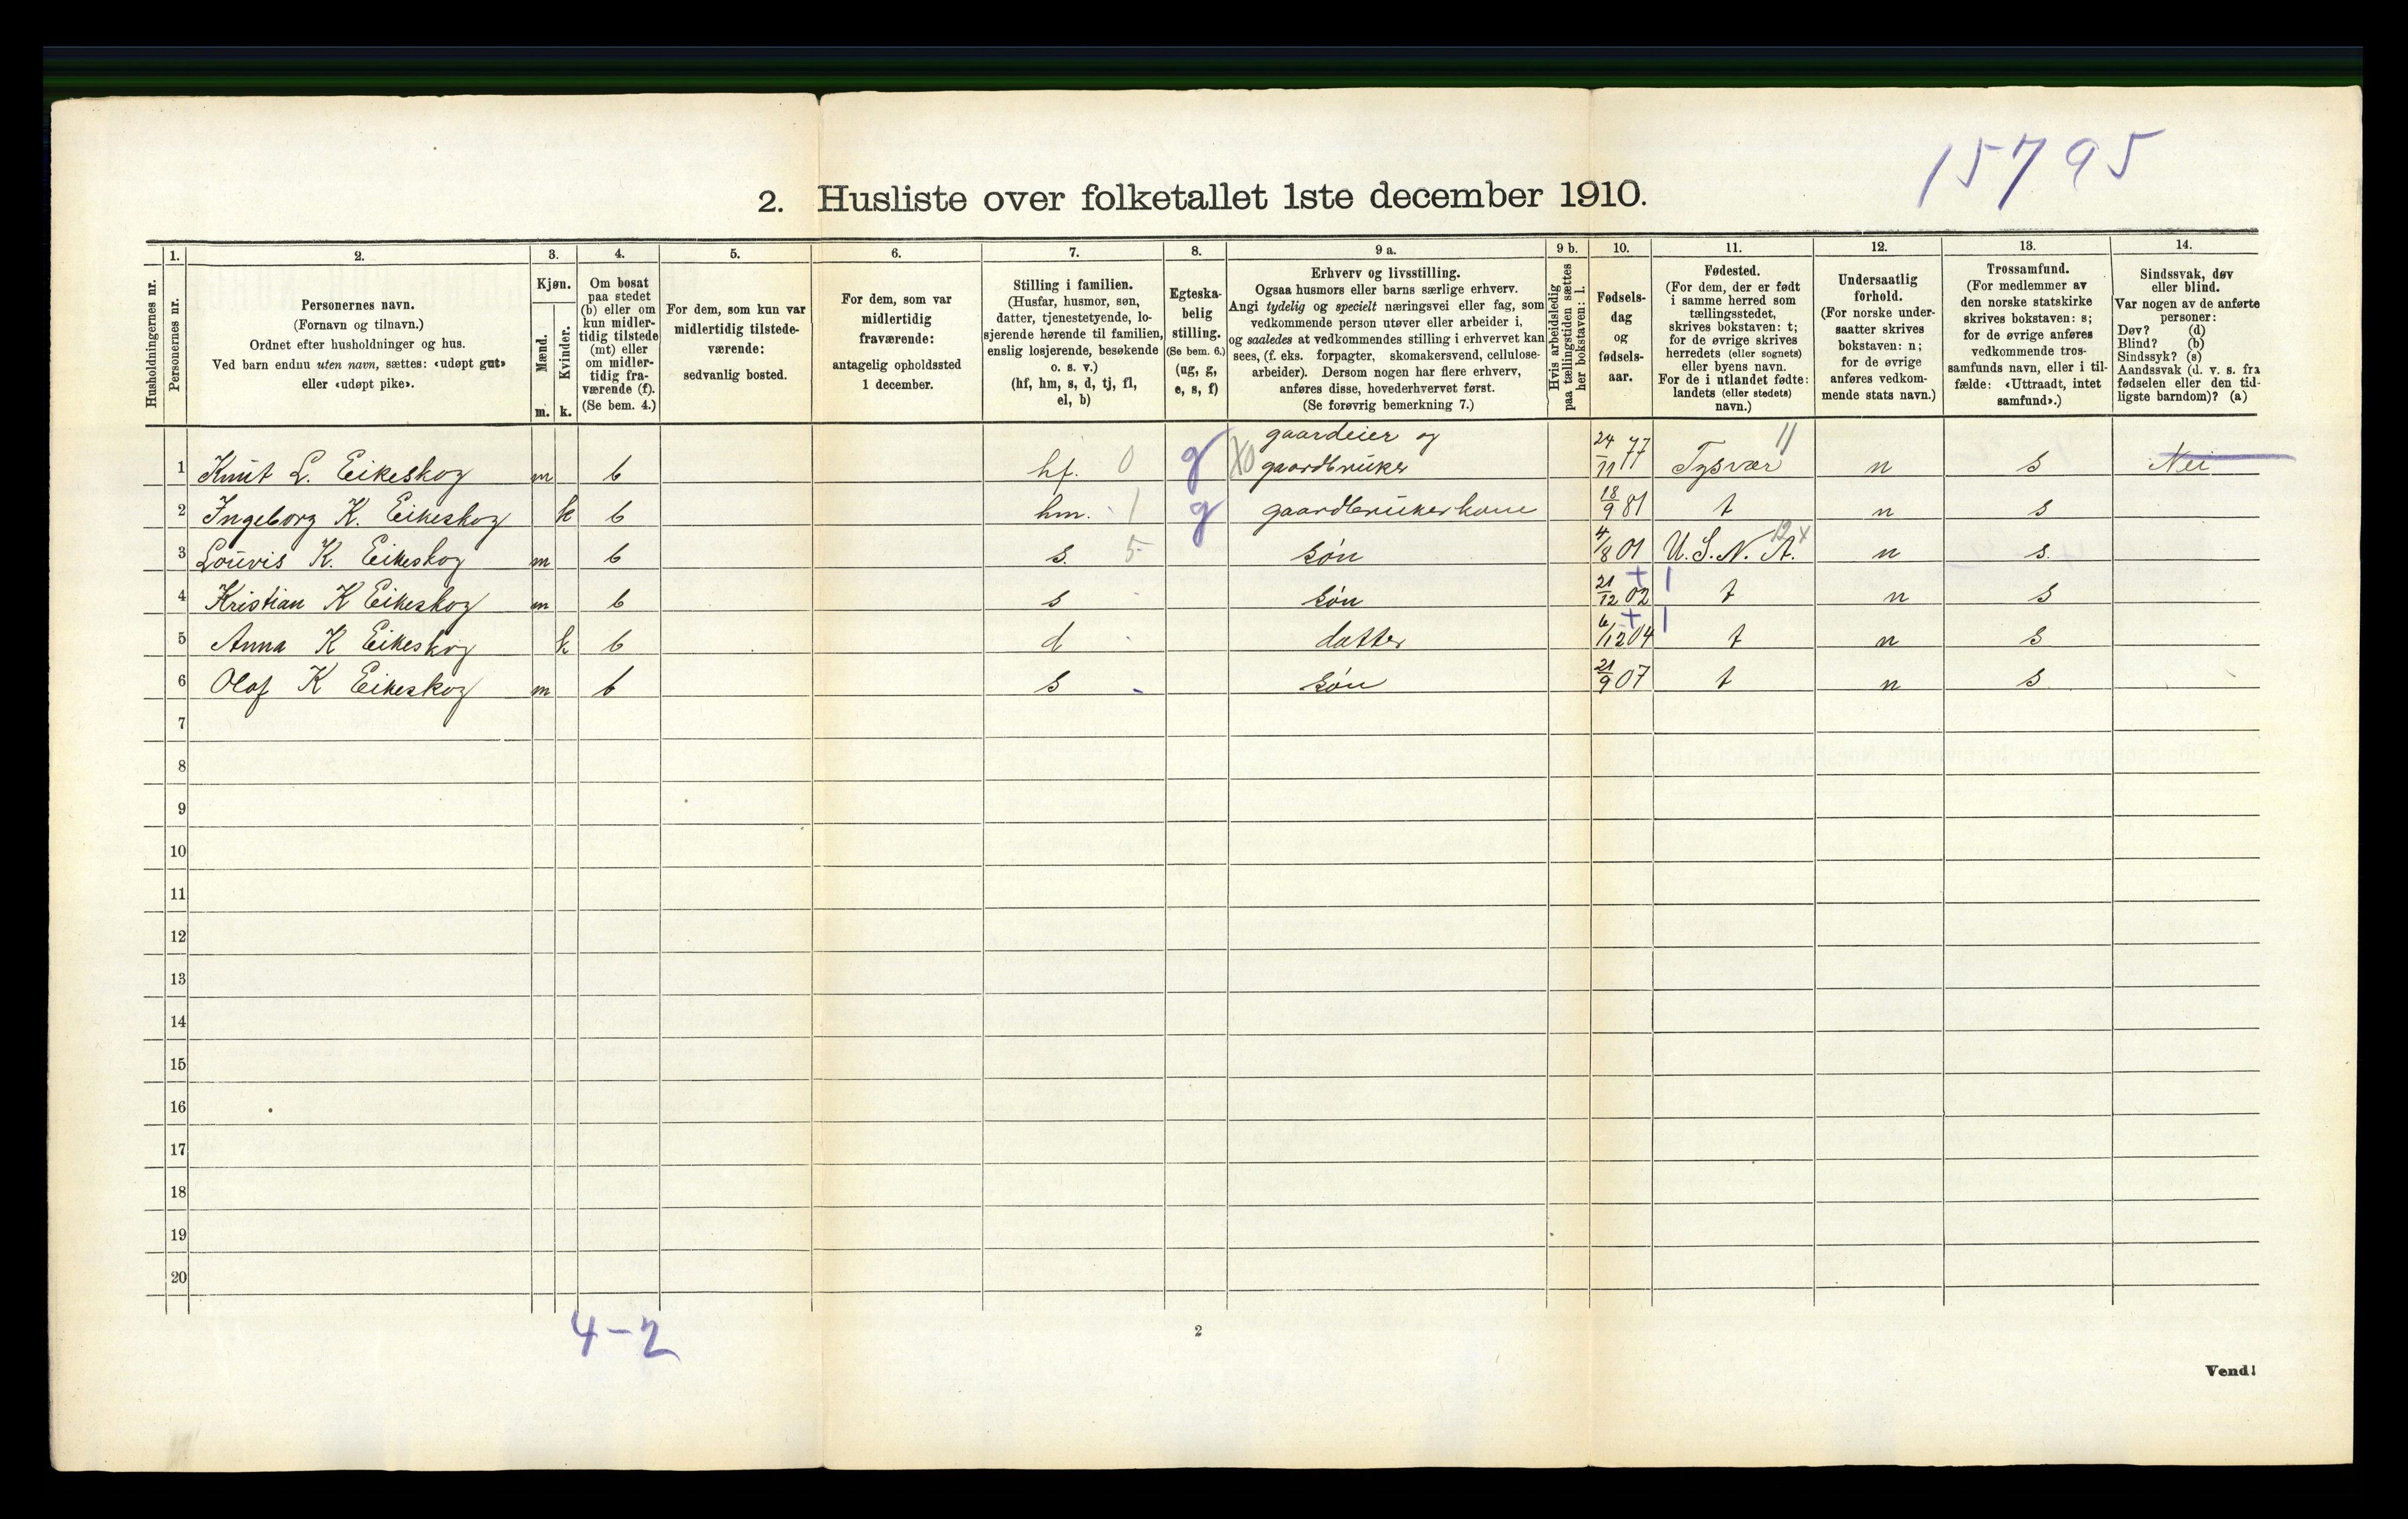 15795
2. Husliste over folketallet 1ste december 1910.
Husholdningernes nr.
1.
Personernes nr.
2.
Personernes navn.
(Fornavn og tilnavn.)
Ordnet efter husholdninger og hus.
Ved barn endnu uten navn, sættes: «udøpt gut»
eller «udøpt pike».
3.
Kjøn.
Mænd.
Kvinder.
m. k.
4.
Om bosat
paa stedet
(b) eller om
kun midler-
tidig tilstede
(mt) eller
om midler-
tidig fra-
værende (f).
(Se bem. 4.)
5.
For dem, som kun var
midlertidig tilstede-
værende:
sedvanlig bosted.
6.
For dem, som var
midlertidig
fraværende:
antagelig opholdssted
1 december.
7.
Stilling i familien.
(Husfar, husmor, søn,
datter, tjenestetyende, lo-
sjerende hørende til familien,
enslig losjerende, besøkende
o. s. v.)
(hf, hm, s, d, tj, fl,
el, b)
8.
Egteska-
belig
stilling.
(Se bem. 6.)
(ug, g,
e, s, f)
9 a.
Erhverv og livsstilling.
Ogsaa husmors eller barns særlige erhverv.
Angi tydelig og specielt næringsvei eller fag, som
vedkommende person utøver eller arbeider i,
og saaledes at vedkommendes stilling i erhvervet kan
sees, (f. eks. forpagter, skomakersvend, cellulose-
arbeider). Dersom nogen har flere erhverv,
anføres disse, hovederhvervet først.
(Se forøvrig bemerkning 7.)
9 b.
Hvis arbeidsledig
paa tællingstiden sættes
her bokstaven: l.
10.
Fødsels-
dag
og
fødsels-
aar.
11.
Fødested.
(For dem, der er født
i samme herred som
tællingsstedet,
skrives bokstaven: t;
for de øvrige skrives
herredets (eller sognets)
eller byens navn.
For de i utlandet fødte:
landets (eller stedets)
navn.)
12.
Undersaatlig
forhold.
(For norske under-
saatter skrives
bokstaven: n;
for de øvrige
anføres vedkom-
mende stats navn.)
13.
Trossamfund.
(For medlemmer av
den norske statskirke
skrives bokstaven: s;
for de øvrige anføres
vedkommende tros-
samfunds navn, eller i til-
fælde: «Uttraadt, intet
samfund».)
14.
Sindssvak, døv
eller blind.
Var nogen av de anførte
personer:
Døv? (d)
Blind? (b)
Sindssyk? (s)
Aandssvak (d. v. s. fra
fødselen eller den tid-
ligste barndom)? (a)
1 Knut L. Eikeskog m b hf. 0 g X0 gaardeier og gaardbruker 24/11 77 Tysvær 11 n s Nei
2 Ingeborg K. Eikeskog k b hm. 1 g gaardbrukerkone 18/9 81 t n s
3 Louvis K. Eikeskog m b s. 5 søn 4/8 01 U.S.N.A. 12 x n s.
4 Kristian K Eikeskog m b s søn 21/12 02 + 1 t n s
5 Anna K Eikeskog k b d datter 6/12 04 + 1 t n s
6 Olaf K Eikeskog m b s - søn 21/9 07 t n s
7
8
9
10
11
12
13
14
15
16
17
18
19
20
4-2
2
Vend!